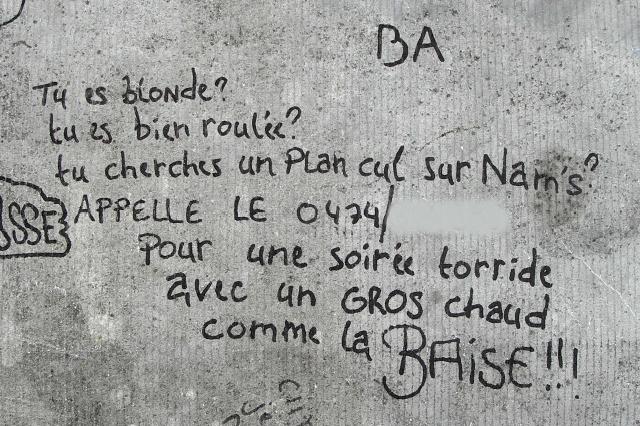 BA
Tu es blonde?
tu es bien roulée?
tu cherches un Plan cul sur Nam's?
SSE APPELLE LE 0474/
Pour une soirée torride
avec un GROS chaud
comme la BAiSE!!!